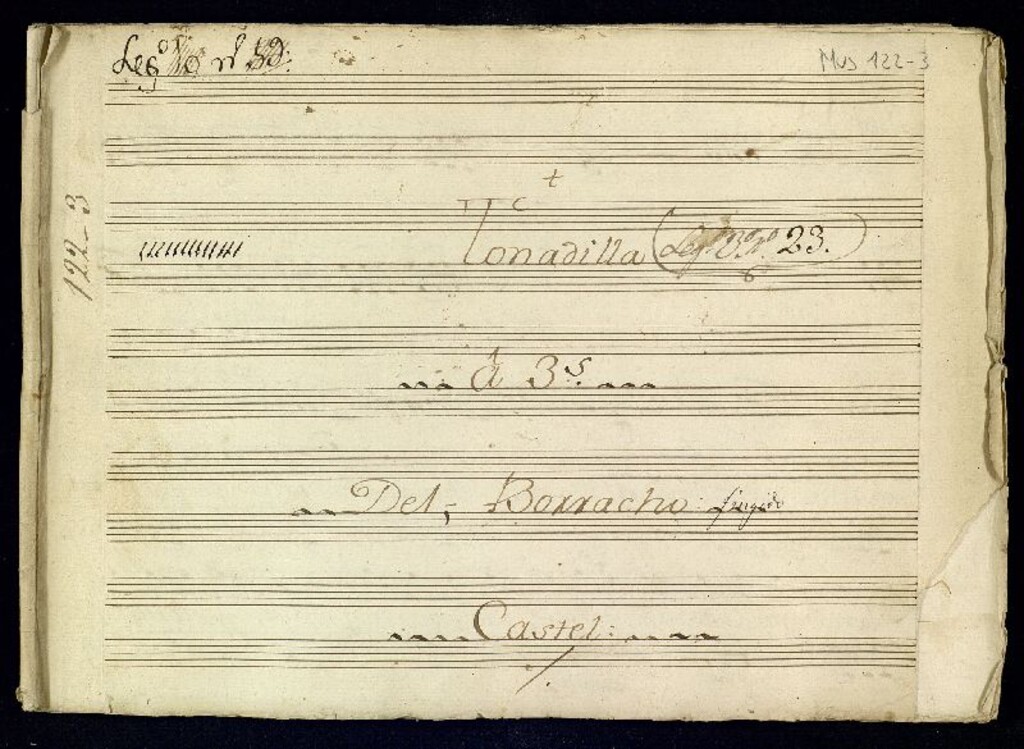 Leg.º
Mus 122-3
122-3
Tonadilla
Leg.º 23.
6
á 3s.
Del Borracho fingido
Castel